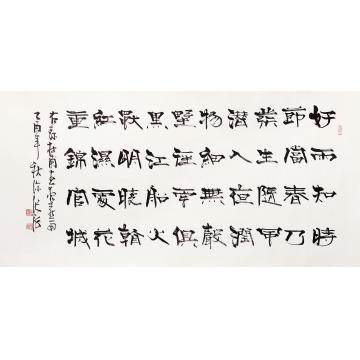 好雨知時
節當春乃
發生隨風
潛入夜潤
物細無聲
野徑雲俱
黑江船火
獨明曉看
紅濕處花
重錦官城
右錄杜甫
乙酉年秋